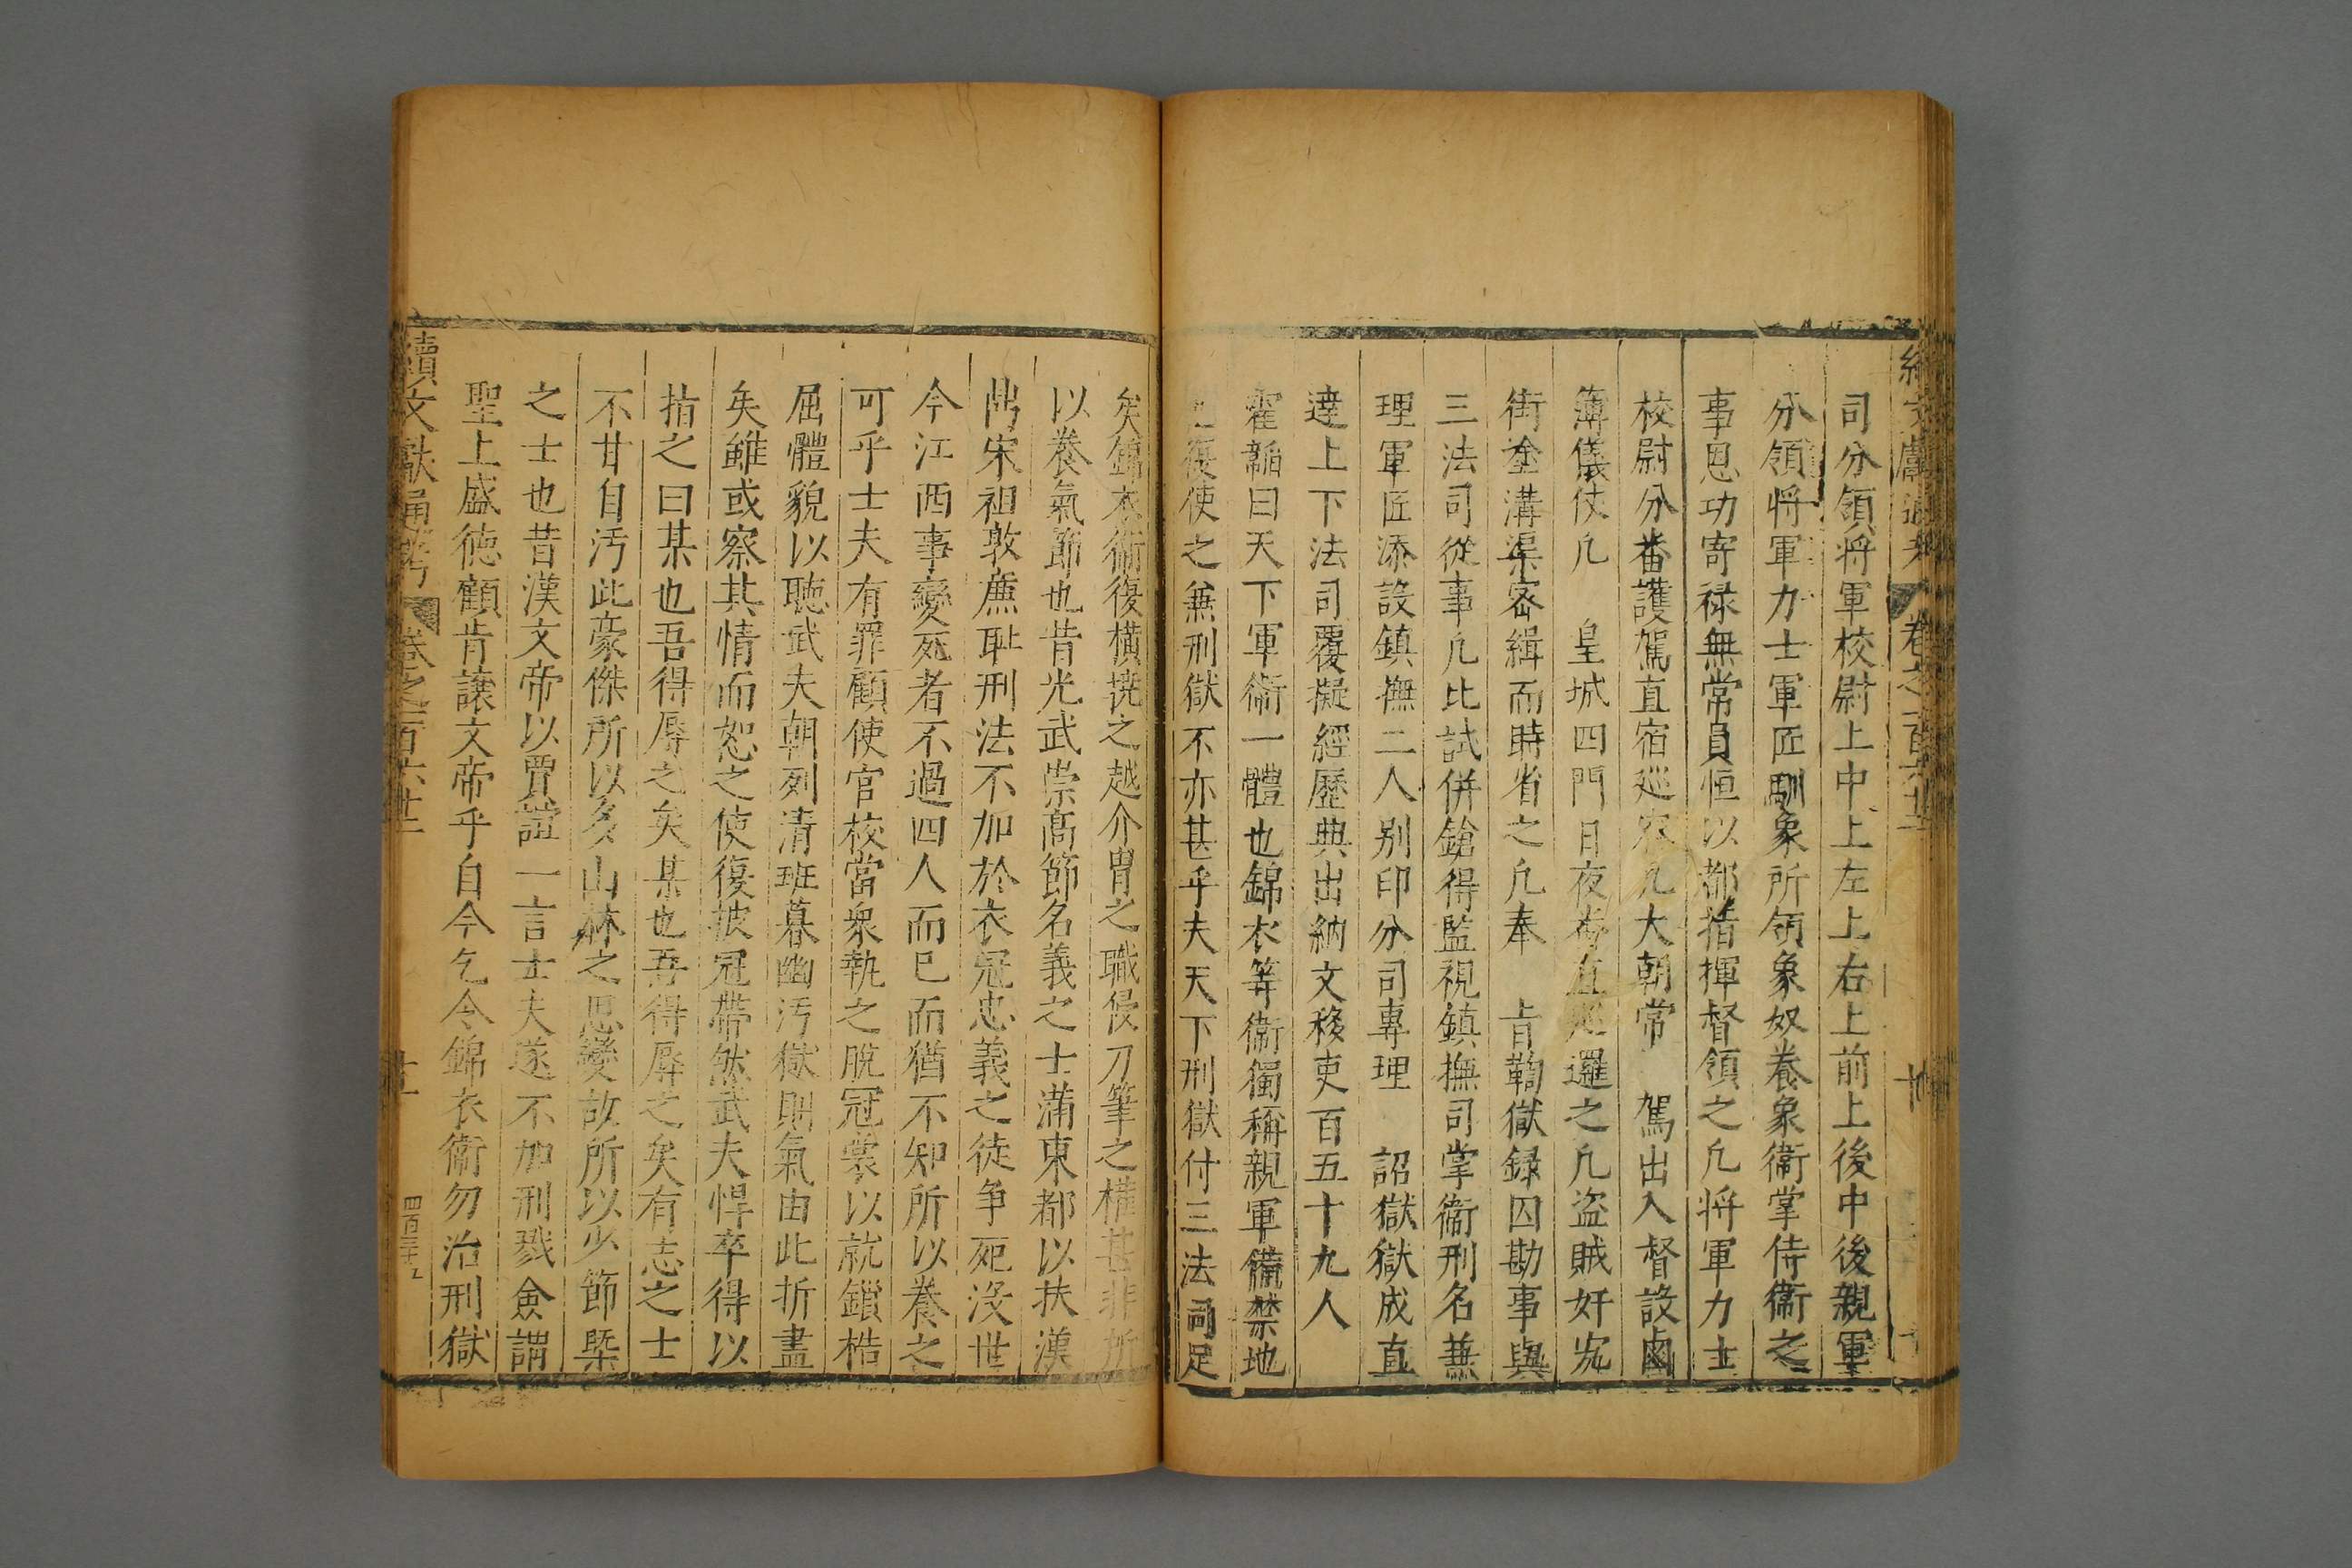 文獻通考 卷之一百六十二
司分領將軍校尉上中上左上右上前上後中後親軍
分領將軍力士軍匠馴象所領象奴養象衛掌侍衛之
事恩功寄祿無常員恒以都指揮督領之凡將軍力士
校尉分番護駕直宿巡察凡大朝常 駕出入督設鹵
簿儀仗凡 皇城四門日夜直廵邏之凡盜賊奸宄
街塗溝渠密緝而時省之凡奉 旨鞫獄録囚勘事與
三法司從事凡比試併鎗得監視鎮撫司掌衛刑名兼
理軍匠添設鎮撫二人别印分司專理 詔獄獄成直
達上下法司覆擬經歷典出納文移吏百五十九人
霍韜曰天下軍衛一體也錦衣等衛獨稱親軍備禁地
復使之兼刑獄不亦甚乎夫天下刑獄付三法司足
矣錦衣衛復橫撓之越介冑之職侵刀筆之權甚非所
以養氣節也昔光武崇髙節名義之士滿東都以扶漢
鼎宋祖敦廉恥刑法不加於衣冠忠義之徒争死沒世
今江西事變死者不過四人而已而猶不知所以養之
可乎士夫有罪顧使官校當衆執之脱冠裳以就鎖梏
屈體貌以聽武夫朝列清班暮幽汚獄則氣由此折盡
矣雖或察其情而恕之使復披冠帶然武夫悍卒得以
指之曰某也吾得辱之矣某也吾得辱之矣有志之士
不甘自汚此豪傑所以多山林之思變故所以少節槩
之士也昔漢文帝以賈誼一言士夫遂不加刑戮僉謂
聖上盛德顧肯讓文帝乎自今乞令錦衣衛勿治刑獄
續文獻通考 卷之一百六十二 四百三十九